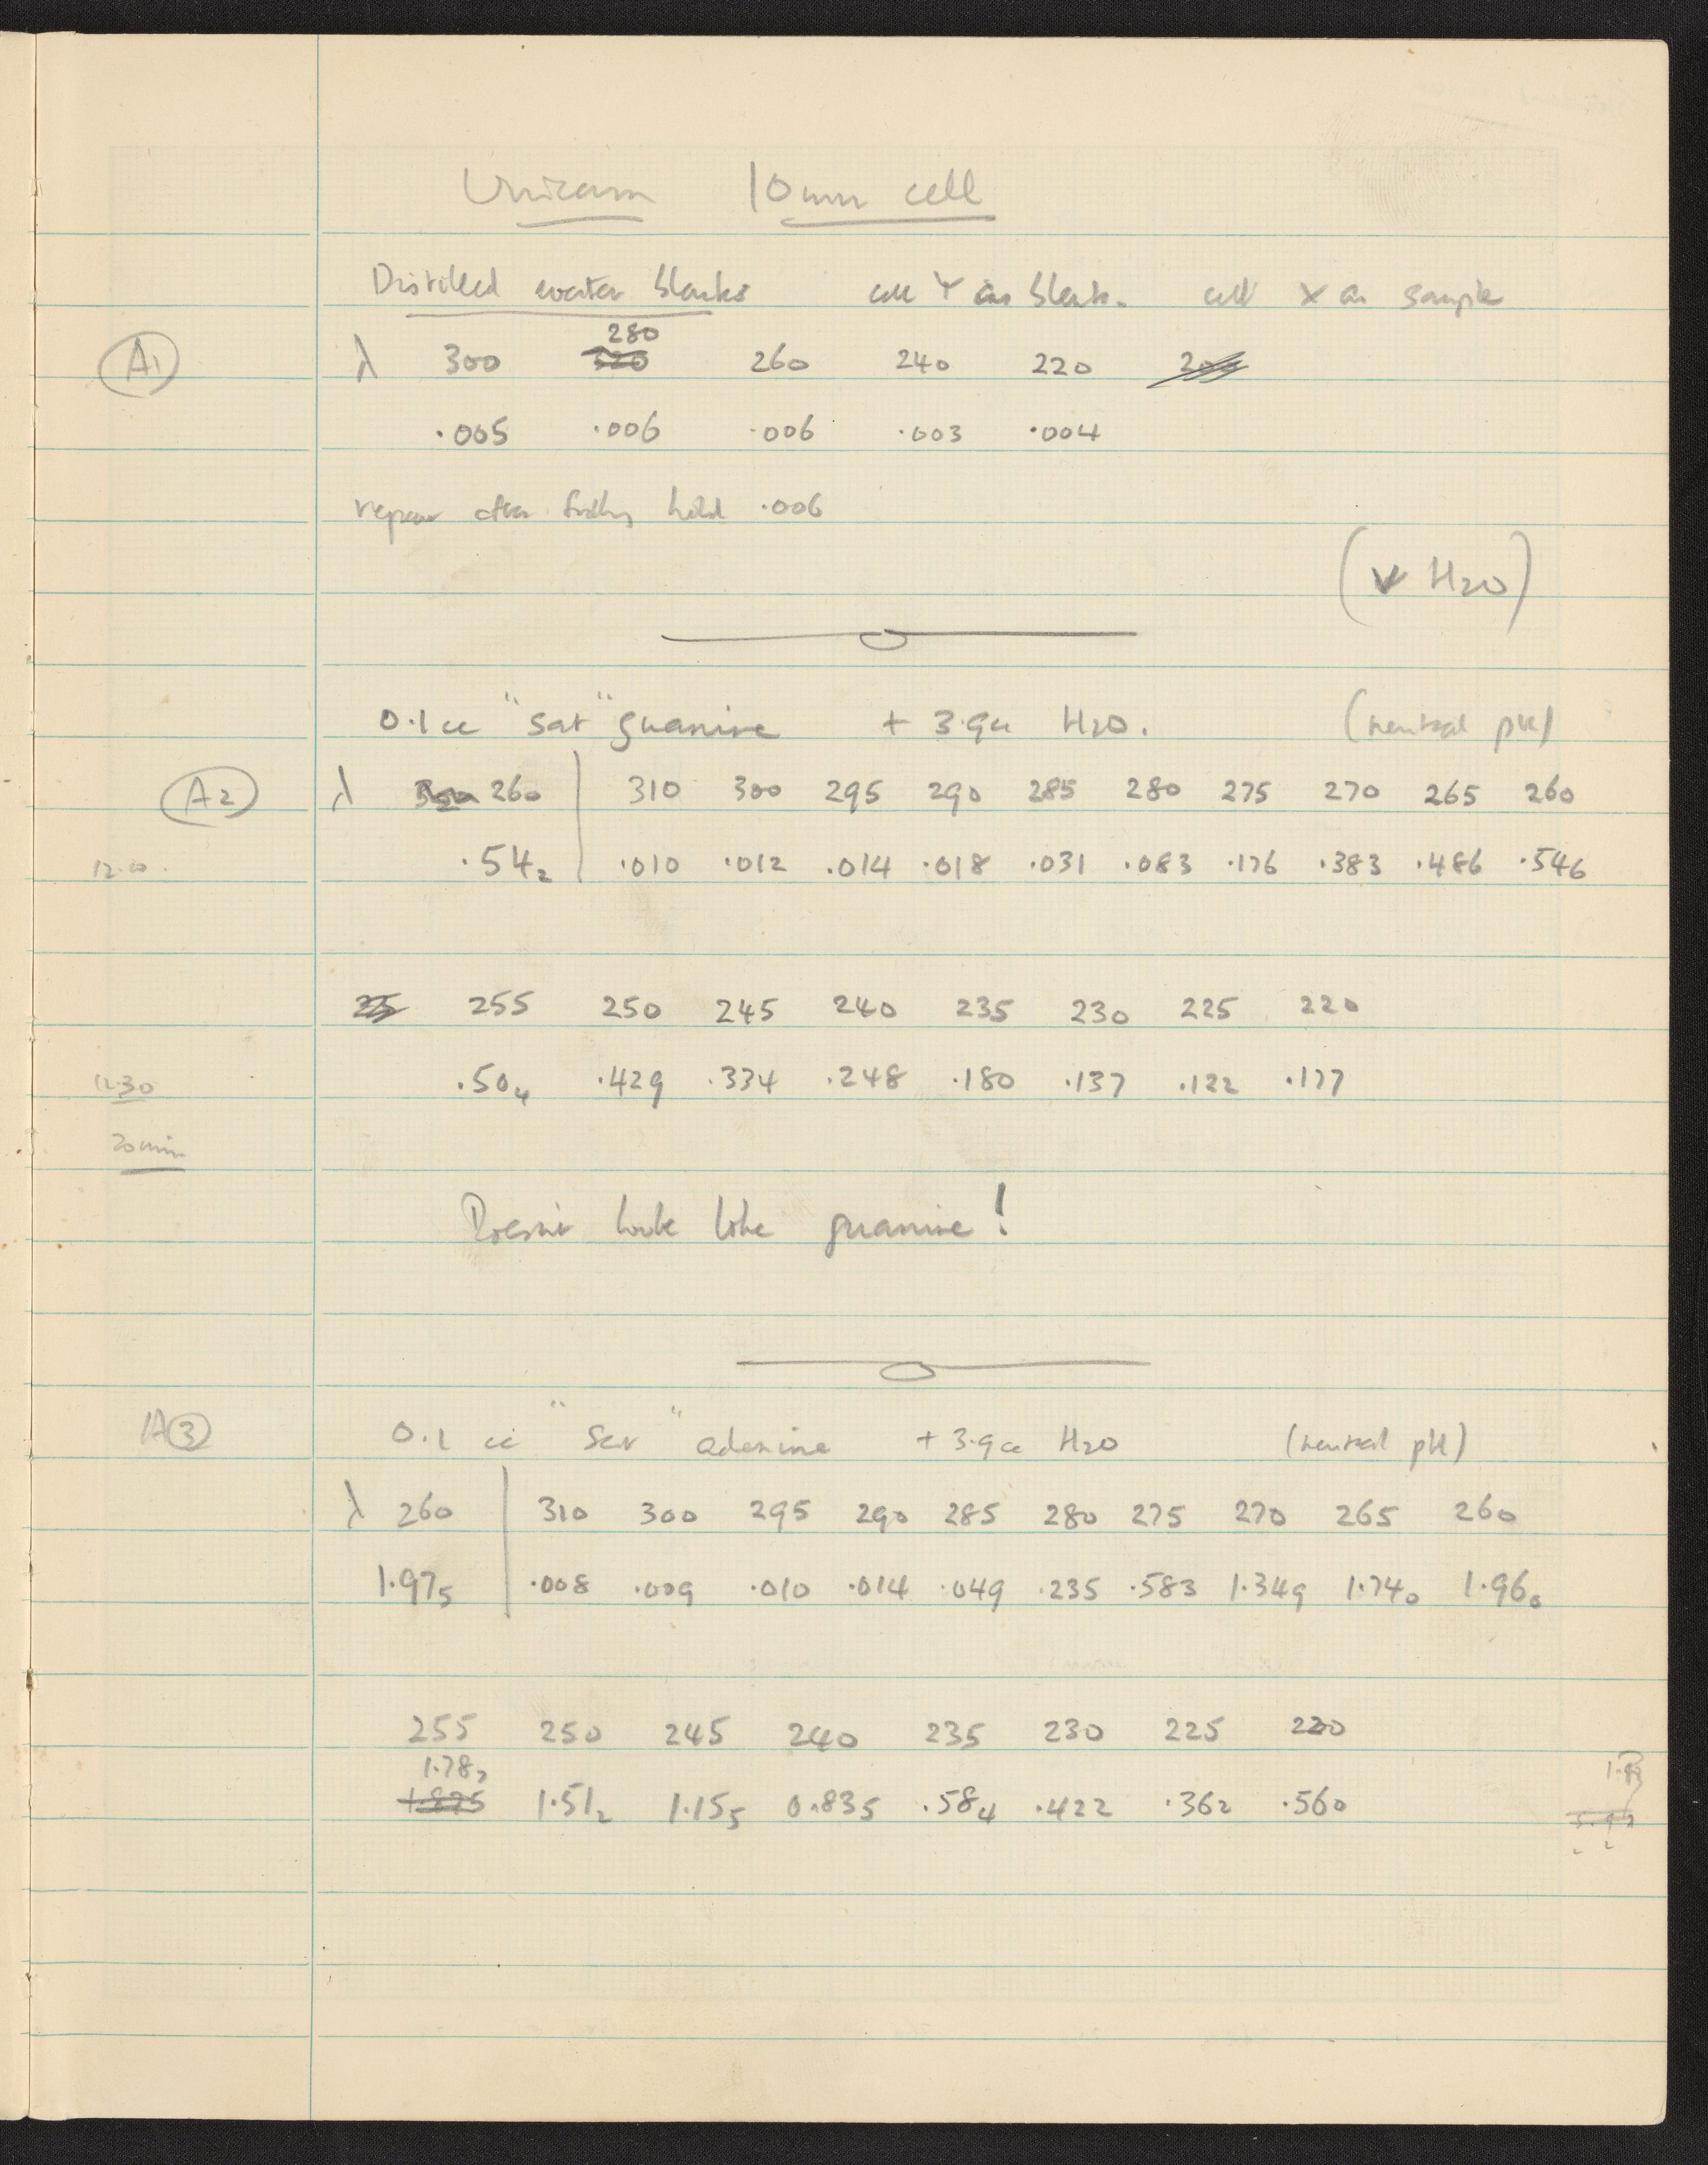 Unicam 10mm cell
Distilled water blanks cell Y as blank. cell X as sample
280
A1 λ 300 320 260 240 220
.005 .006 .006 .003 .004
repeat after .006
(v H2O)
0.1 cc "sat" guanine + 3.9cc H2O. (neutral pH)
A2 λ 260 310 300 295 290 285 280 275 270 265 260
12.0 .542 .010 .012 .014 .018 .031 .083 .176 .383 .486 .546
255 250 245 240 235 230 225 220
12.30 .504 .429 .334 .248 .180 .137 .122 .177
20 min
Doesn't look like guanine!
A3 0.1 cc "Sat" adenine + 3.9cc H2O (neutral pH)
λ 260 310 300 295 290 285 280 275 270 265 260
1.975 .008 .009 .010 .014 .049 .235 .583 1.349 1.740 1.960
255 250 245 240 235 230 225 220
1.787
1.825 1.512 1.155 0.835 .584 .422 .362 .560